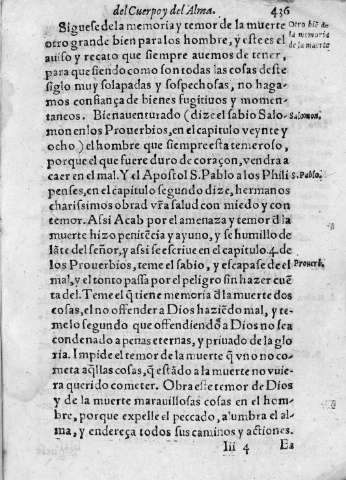 del Cuerpo y del Alma. 436
Siguese de la memoria y temor de la muerte
otro grande bien para los hombre, y este es el
auiso y recato que siempre auemos de tener,
para que siendo como son todas las cosas deste
siglo muy solapadas y sospechosas, no haga-
mos confiança de bienes fugitiuos y momen-
taneos. Bienauenturado (dize el sabio Salo-
mon en los Prouerbios, en el capitulo veynte y
ocho) el hombre que siempre esta temeroso,
porque el que fuere duro de coraçon, vendra a
caer en el mal. Y el Apostol S. Pablo a los Phili
penses, en el capitulo segundo dize, hermanos
charissimos obrad vr̃a salud con miedo y con
temor. Assi Acab por el amenaza y temor d̃ la
muerte hizo penitẽcia y ayuno, y se humillo de
lãte del señor, y assi se escriue en el capitulo. 4. de
los Prouerbios, teme el sabio, y escapase de el
mal, y el tonto passa por el peligro sin hazer cuẽ
ta del. Teme el q̃ tiene memoria d̃ la muerte dos
cosas, el no offender a Dios haziẽdo mal, y te-
me lo segundo que offendiendõ a Dios no sea
condenado a penas eternas, y priuado de la glo
ria. Impide el temor de la muerte q̃ vno no co-
meta aq̃llas cosas, q̃ estãdo a la muerte no vuie-
ra querido cometer. Obra este temor de Dios
y de la muerte marauillosas cosas en el hom-
bre, porque expelle el peccado, a'umbra el al-
ma, y endereça todos sus caminos y actiones.
Iii 4 Es
Otro biẽ de
la memoria
de la muerte
Salomon.
S. Pablo.
Prouerb.